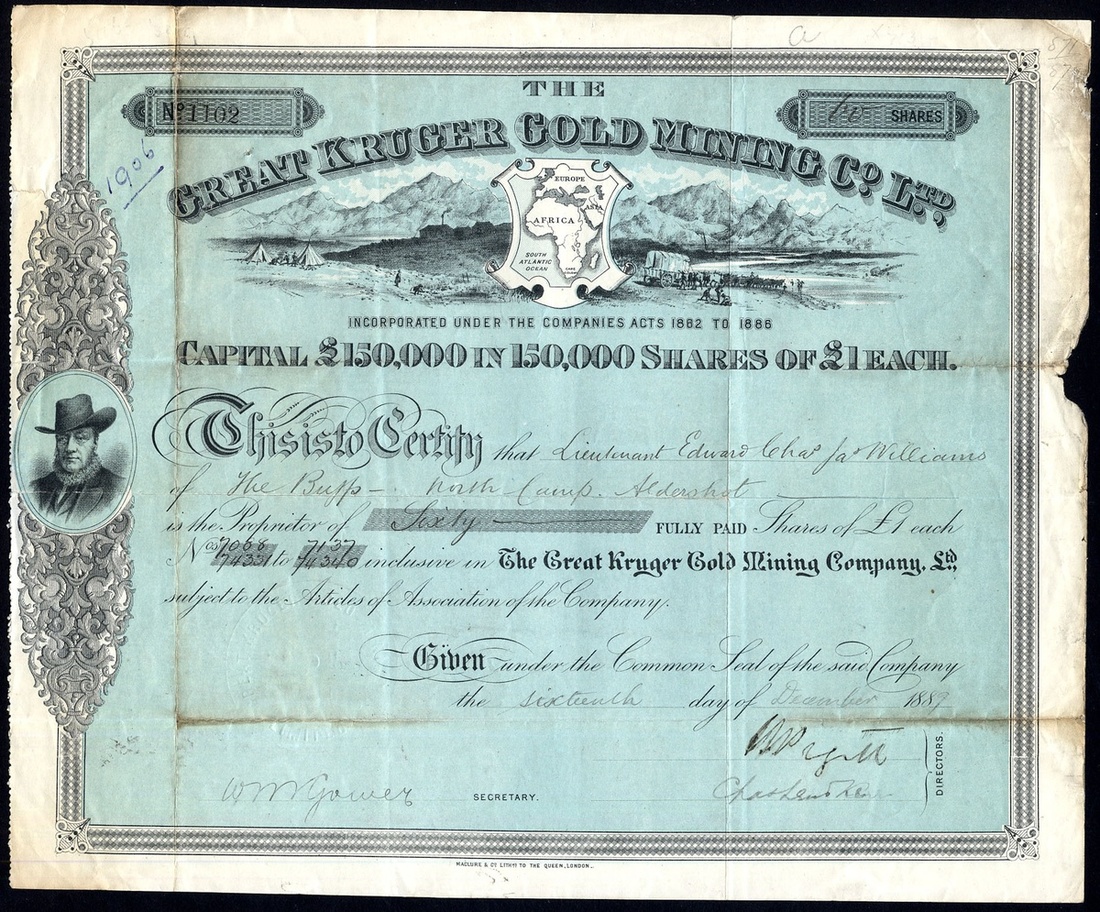 a
THE
No 1102
60 SHARES
1906
GREAT KRUGER GOLD MINING Co LTD,
EUROPE
ASIA
AFRICA
SOUTH
ATLANTIC
OCEAN
INCORPORATED UNDER THE COMPANIES ACTS 1862 TO 1886
CAPITAL £150,000 IN 150,000 SHARES OF £1 EACH.
This is to Certify that Lieutenant Edward Chas Jas Williams
of The Buffs - North Camp. Aldershot
is the Proprietor of Sixty FULLY PAID Shares of £1 each
Nos 7068 7137
74331 to 74340 inclusive in The Great Kruger Gold Mining Company, Ld,
subject to the Articles of Association of the Company.
Given under the Common Seal of the said Company
the sixteenth day of December 1889
Wm Gower SECRETARY.
DIRECTORS.
MACLURE & Co LITHRS TO THE QUEEN, LONDON.